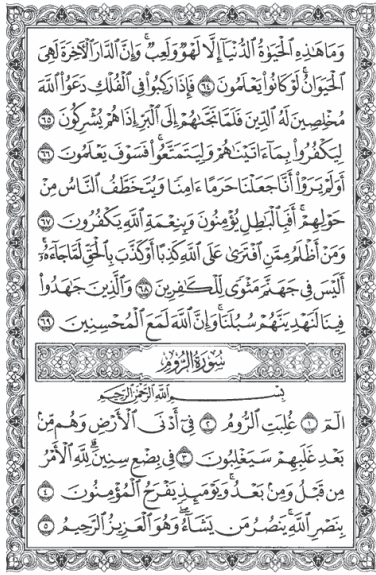 وَمَا هَٰذِهِ الْحَيَوٰةُ الدُّنْيَآ إِلَّا لَهْوٌ وَلَعِبٌ ۚ وَإِنَّ الدَّارَ الْأَخِرَةَ لَهِىَ
الْحَيَوَانُ ۚ لَوْ كَانُوا۟ يَعْلَمُونَ ٦٤ فَإِذَا رَكِبُوا۟ فِى الْفُلْكِ دَعَوُا۟ اللَّهَ
مُخْلِصِينَ لَهُ الدِّينَ فَلَمَّا نَجَّىٰهُمْ إِلَى الْبَرِّ إِذَا هُمْ يُشْرِكُونَ ٦٥
لِيَكْفُرُوا۟ بِمَآ ءَاتَيْنَٰهُمْ وَلِيَتَمَتَّعُوا۟ ۖ فَسَوْفَ يَعْلَمُونَ ٦٦
أَوَلَمْ يَرَوْا۟ أَنَّا جَعَلْنَا حَرَمًا ءَامِنًا وَيُتَخَطَّفُ النَّاسُ مِنْ
حَوْلِهِمْ ۚ أَفَبِالْبَٰطِلِ يُؤْمِنُونَ وَبِنِعْمَةِ اللَّهِ يَكْفُرُونَ ٦٧
وَمَنْ أَظْلَمُ مِمَّنِ افْتَرَىٰ عَلَى اللَّهِ كَذِبًا أَوْ كَذَّبَ بِالْحَقِّ لَمَّا جَآءَهُۥٓ ۚ
أَلَيْسَ فِى جَهَنَّمَ مَثْوًى لِّلْكَٰفِرِينَ ٦٨ وَالَّذِينَ جَٰهَدُوا۟
فِينَا لَنَهْدِيَنَّهُمْ سُبُلَنَا ۚ وَإِنَّ اللَّهَ لَمَعَ الْمُحْسِنِينَ ٦٩
سُورَةُ الرُّومِ
بِسْمِ اللَّهِ الرَّحْمَٰنِ الرَّحِيمِ
الٓمٓ ١ غُلِبَتِ الرُّومُ ٢ فِىٓ أَدْنَى الْأَرْضِ وَهُم مِّنۢ
بَعْدِ غَلَبِهِمْ سَيَغْلِبُونَ ٣ فِى بِضْعِ سِنِينَ ۗ لِلَّهِ الْأَمْرُ
مِن قَبْلُ وَمِنۢ بَعْدُ ۚ وَيَوْمَئِذٍ يَفْرَحُ الْمُؤْمِنُونَ ٤
بِنَصْرِ اللَّهِ ۚ يَنصُرُ مَن يَشَآءُ ۖ وَهُوَ الْعَزِيزُ الرَّحِيمُ ٥